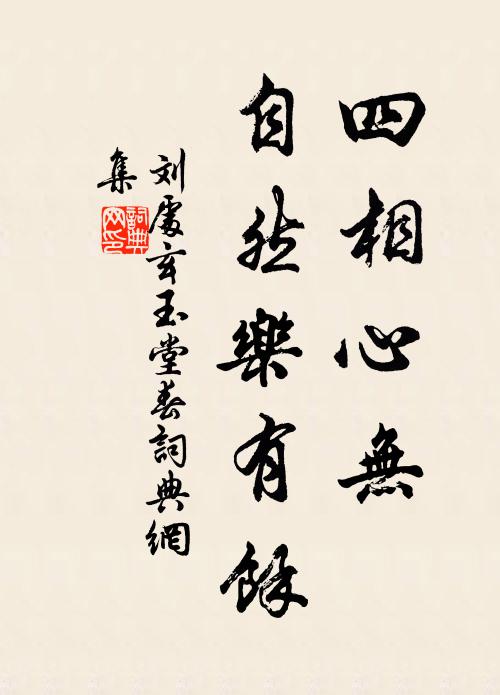 四相心無
自然樂有餘
刘處玄玉堂春詞典網
集
詞典
网印